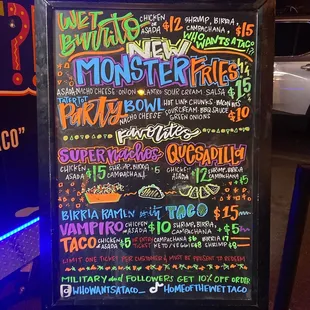 WET Burrito CHICKEN OR ASADA $12 SHRIMP, BIRRIA, CAMPACHANA, $15
WHOWANTSATACO
NEW
MONSTER FRIES
ASADA NACHO CHEESE ONION CILANTRO SOUR CREAM SALSA $15
TATER TOT
PARTY BOWL HOT LINK CHUNKS
NACHO CHEESE SOURCREAM BBQ SAUCE
GREEN ONIONS $10
favorites
SUPER Nachos QUESADILLA
CHICKEN ASADA $15 SHRIMP, BIRRIA CAMPACHANA
CHICKEN ASADA $12 SHRIMP, BIRRIA CAMPACHANA
BIRRIA RAMEN with TACO $15
VAMPIRO CHICKEN ASADA $10 SHRIMP, BIRRIA CAMPACHANA
TACO CHICKEN ASADA $5 CAMPACHANA $6 BIRRIA
KETO/VEGGIE $8 SHRIMP
LIMIT ONE TICKET PER CUSTOMER & MUST BE PRESENT TO REDEEM
MILITARY and FOLLOWERS GET 10% OFF ORDER!
@WHOWANTSATACO HOMEOFTHEWETTACO
ACO"